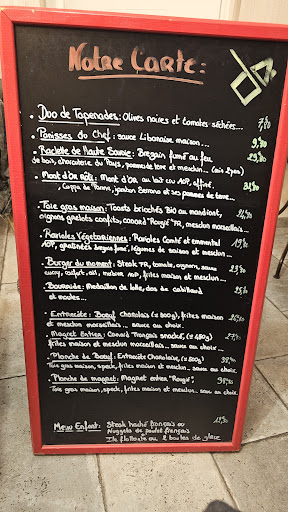 Notre Carte:
• Duo de Tapenades: Olives noires et tomates séchées... 7,80
• Panisses du Chef: sauce Libanaise maison... 9,80
• Raclette de Haute Savoie: Brezain fumé au feu 29,80
de bois, charcuterie du Pays, pommes de terre et mesclun...
• Mont d'Or Rôti: Mont d'Or au lait cru AOP, affiné,
Coppa de Parme, jambon Serrano et ses pommes de terre...
• Foie gras maison: Toasts briochés Bio au mendiant,
oignons grelots confits, canard "Rougié" FR, mesclun maraîchers...
• Ravioles Végétariennes: Ravioles Comté et emmental
AOP, gratinées Brezain fumé, légumes de saison et mesclun...
• Burger du moment: Steak FR, tomate, oignons, sauce
maison AOP, frites maison et mesclun...
• Bourride: Médaillon de lotte, dos de cabillaud
et moules...
• Entrecôte: Boeuf Charolais (± 300g), frites maison
et mesclun maraîchers... sauce au choix.
• Magret Entier: Canard Français snacké, (± 450g)
frites maison et mesclun maraîchers... sauce au choix...
• Planche de Boeuf: Entrecôte Charolaise, (± 300g)
Foie gras maison, speck, frites maison et mesclun... sauce au choix...
• Planche de magret: Magret entier "Rougié",
Foie gras maison, speck, frites maison et mesclun... sauce au choix.
Menu Enfant: Steak haché français ou
Nuggets de poulet français
Île flottante ou 2 boules de glace